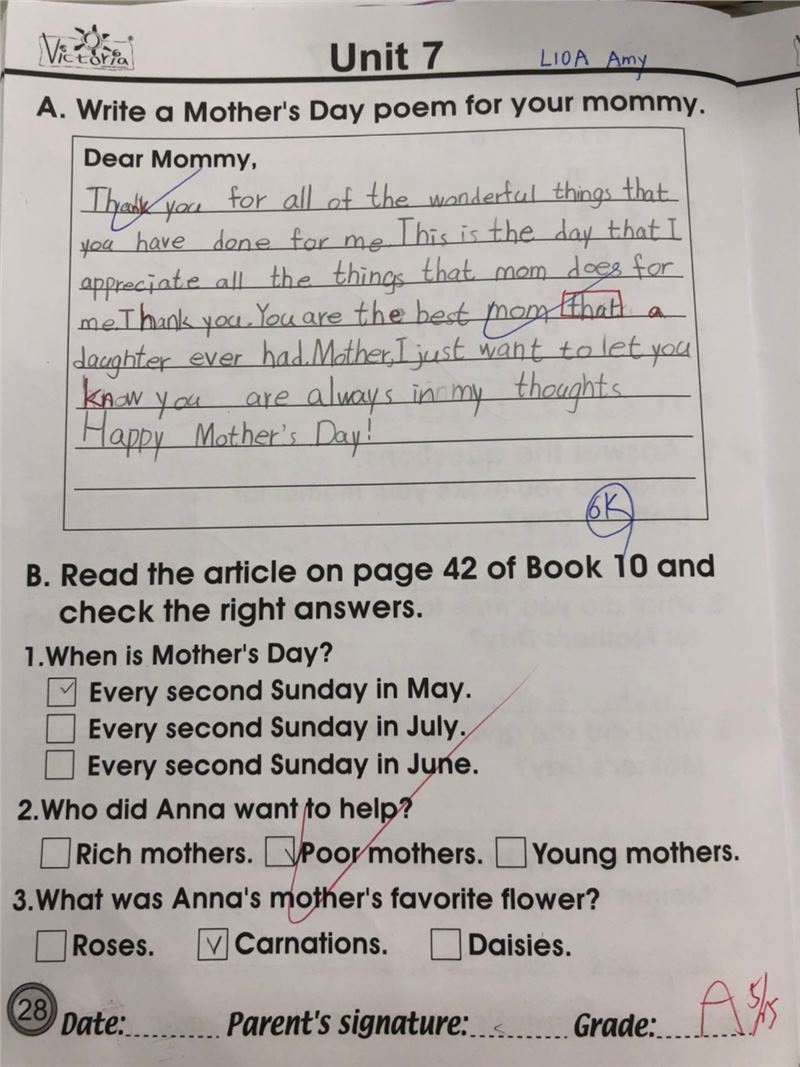 Victoria
Unit 7
L10A Amy
A. Write a Mother's Day poem for your mommy.
Dear Mommy,
Thank you for all of the wonderful things that
you have done for me. This is the day that I
appreciate all the things that mom does for
me. Thank you. You are the best mom that a
daughter ever had. Mother, I just want to let you
know you are always in my thoughts
Happy Mother's Day!
B. Read the article on page 42 of Book 10 and
check the right answers.
1.When is Mother's Day?
Every second Sunday in May.
Every second Sunday in July.
Every second Sunday in June.
2.Who did Anna want to help?
Rich mothers. Poor mothers. Young mothers.
3.What was Anna's mother's favorite flower?
Roses. Carnations. Daisies.
28 Date:.......... Parent's signature:.......... Grade:.......... A 5/15